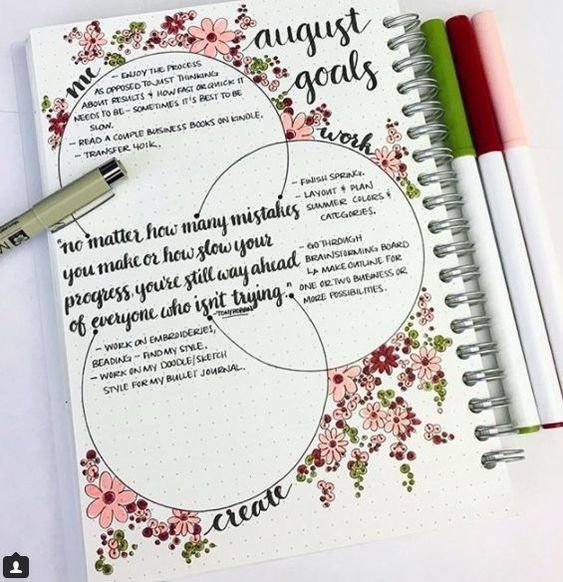 august
goals
me
- ENJOY THE PROCESS
AS OPPOSED TO JUST THINKING
ABOUT RESULTS & HOW FAST OR QUICK IT
NEEDS TO BE - SOMETIMES IT'S BEST TO BE
SLOW.
- READ A COUPLE BUSINESS BOOKS ON KINDLE.
- TRANSFER 401K.
work
- FINISH SPRING.
- LAYOUT & PLAN
SUMMER COLORS &
CATEGORIES.
- GO THROUGH
BRAINSTORMING BOARD
↳ MAKE OUTLINE FOR
ONE OR TWO BUSINESS OR
MORE POSSIBILITIES.
"no matter how many mistakes
you make or how slow your
progress, you're still way ahead
of everyone who isn't trying."
- TONY ROBBINS
- WORK ON EMBROIDERIES,
BEADING - FIND MY STYLE.
- WORK ON MY DOODLE/SKETCH
STYLE FOR MY BULLET JOURNAL.
create